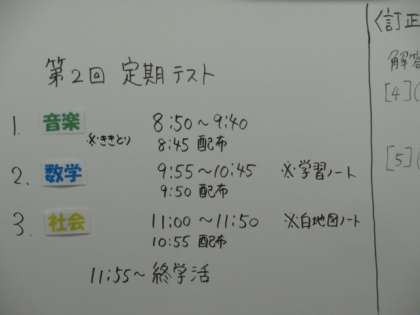 第2回 定期テスト
1. 音楽 8:50～9:40
※ききとり 8:45 配布
2. 数学 9:55～10:45 ※学習ノート
9:50 配布
3. 社会 11:00～11:50 ※白地図ノート
10:55 配布
11:55～ 終学活
〈訂正
解答
[4](
[5](